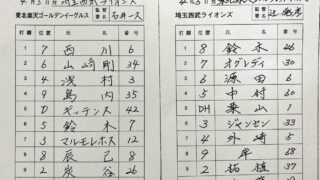 東北楽天ゴールデンイーグルス
監督署名 石井一久
打順 位置 氏名 番号
1 7 西川 6
2 6 山﨑剛 34
3 4 浅村 3
4 9 島内 35
5 D ギッテンス 42
6 5 鈴木 7
7 3 マルモレホス 12
8 8 辰己 8
9 2 炭谷 26
埼玉西武ライオンズ
監督署名
打順 位置 氏名 番号
1 8 鈴木 46
2 7 オグレディ 30
3 6 源田 6
4 5 中村 60
5 DH 栗山 1
6 3 ジャンセン 33
7 4 外崎 5
8 9 岸
9 2 柘植 37